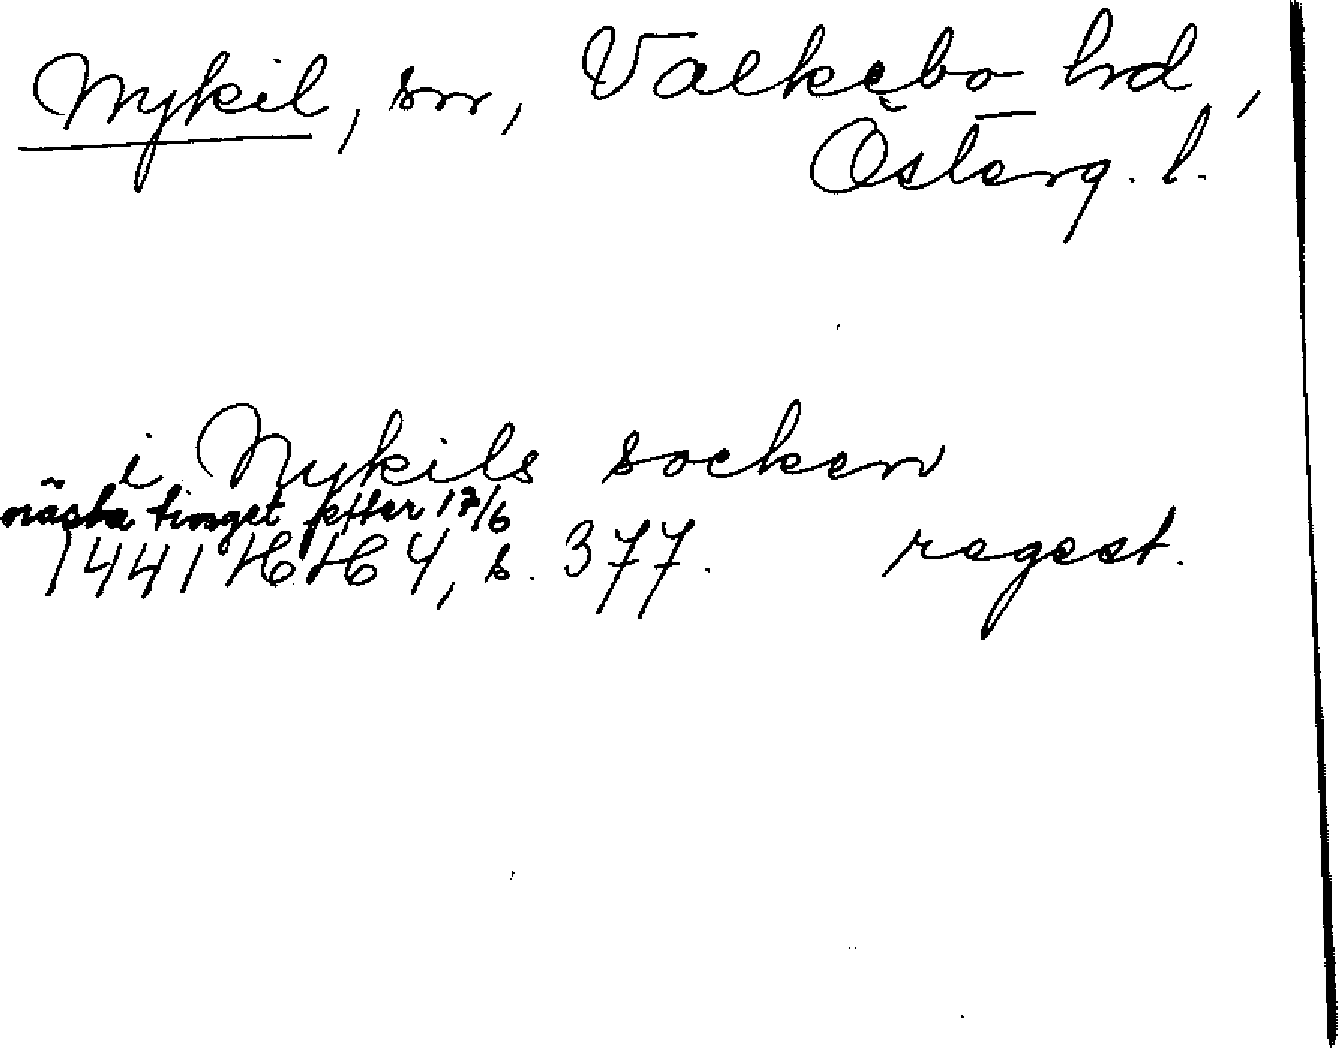 Nykil, sn, Valkebo hd,
Österg. l.
i Nykils socken
nästa tinget efter 17/6
1441 HH 4, s. 377. regest.